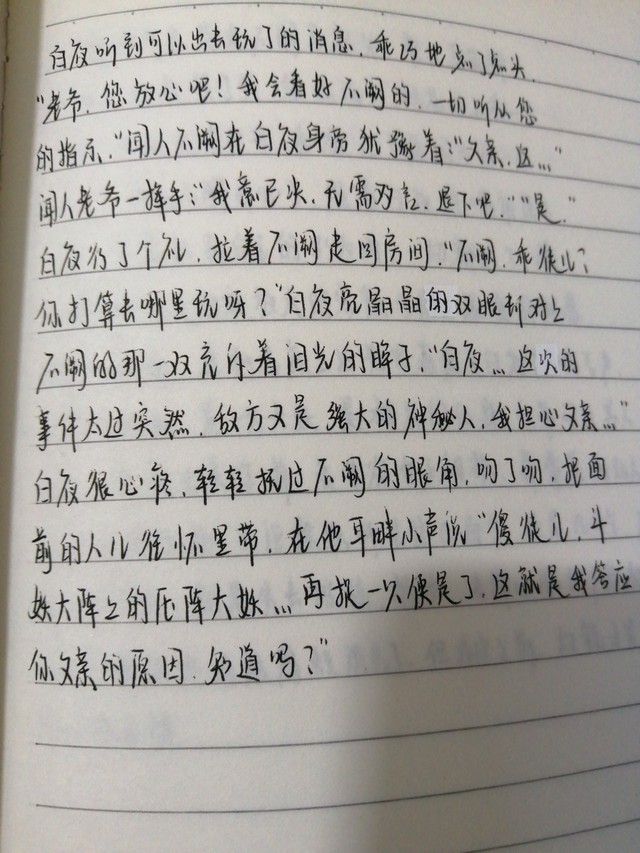 白夜听到可以出去玩了的消息，乖巧地点了点头，
“老爷，您放心吧！我会看好不阙的，一切听从您
的指示。”闻人不阙在白夜身旁犹豫着：“父亲，这…”
闻人老爷一挥手：“我意已决，无需多言，退下吧。”“是。”
白夜行了个礼，拉着不阙走回房间，“不阙，乖徒儿？
你打算去哪里玩呀？”白夜亮晶晶的双眼刚对上
不阙的那一双充斥着泪光的眸子，“白夜…这次的
事件太过突然，敌方又是强大的神秘人，我担心父亲…”
白夜很心疼，轻轻抚过不阙的眼角，吻了吻，把面
前的人儿往怀里带，在他耳畔小声说“傻徒儿，斗
妖大阵上的压阵大妖…再捉一只便是了，这就是我答应
你父亲的原因，知道吗？”